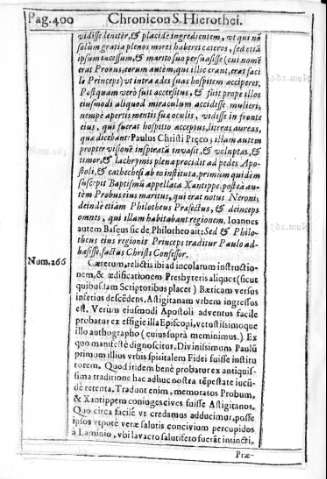 Pag. 400 Chronicon S. Hierothei.
vidisse leniter, & placidè ingredientem, vt qui nō
solum gratia plenos mores haberet cæteros, sed etiā
ipsum incessum, & marito suo persuasisse (cui nomē
erat Probus, eorum autem, qui illic erant, erat faci
le Princeps) vt intra ædes suas hospitem acciperet.
Postquam verò fuit acceptus, & fuit prope illos
eiusmodi aliquod miraculum accidisse mulieri,
nempe apertis mentis suæ oculis, vidisse in fronte
eius, qui fuerat hospitio acceptus, litteras aureas,
quæ dicebant: Paulus Christi Præco; illam autem
propter visionē insperatā inuasit, & voluptas, &
timor, & lachrymis plena procidit ad pedes Apo-
stoli, & cathechesi ab eo instituta, primùm quidem
suscepit Baptismū appellata Xantippe, postea au-
tem Probus eius maritus, qui erat notus Neroni,
deinde etiam Philotheus Præfectus, & deinceps
omnes, qui illam habitabant regionem. Ioannes
autem Baseus sic de Philotheo ait: Sed & Philo-
theus eius regionis Princeps traditur Paulo ad-
hæsisse, factus Christi Confessor.
Num. 266 Cæterum, relictis ibi ad incolarum instructio-
nem, & ædificationem Presbyteris aliquet (sicut
quibuslam Scriptoribus placet) Bæticam versus
inferius descēdens, Astigitanam vrbem ingressus
est. Verùm eiusmodi Apostoli aduentus facile
probatur ex effigie illa Episcopi, vetustissimoque
illo authographo (cuius suprà meminimus.) Ex
quo manifestè dignoscitur, Diuinissimum Paulū
primum illius vrbis spiritalem Fidei fuisse institu
torem. Quod itidem benè probatur ex antiquis-
sima traditione hac adhuc nostra tēpestate iucū-
dè retenta. Tradunt enim, memoratos Probum,
& Xantippem coniuges ciues fuisse Astigitanos.
Quo circa facilè vt credamus adducimur, posse
ipsos vtpotè veræ salutis conciuium percupidos
à Laminio, vbi lauacro salutifero fuerāt inuncti,
Præ-